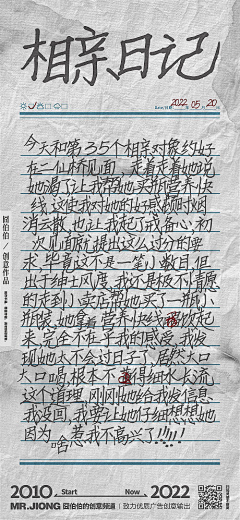 相亲日记
Date/日期: 2022. 05. 20
今天和第35个相亲对象约好
在二仙桥见面，走着走着她说
她渴了让我帮她买瓶营养快
线，这使我对她的好感顿时烟
消云散，也让我起了戒备心，初
次见面就提出这么过分的要
求，毕竟这不是一笔小数目，但
出于绅士风度，我还是极不情愿
的走到小卖店帮她买了一瓶小
瓶装，她拿着营养快线喝饮起
来，完全不在乎我的感受，我发
现她太不会过日子了，居然大口
大口喝，根本不懂得细水长流
这个道理，刚刚她给我发信息
我没回，我要让她仔细想想她
因为啥惹我不高兴了!!!!
囧伯伯 / 创意作品
2010. Start Now. 2022
MR.JIONG 囧伯伯的创意频道 | 致力优质广告创意输出